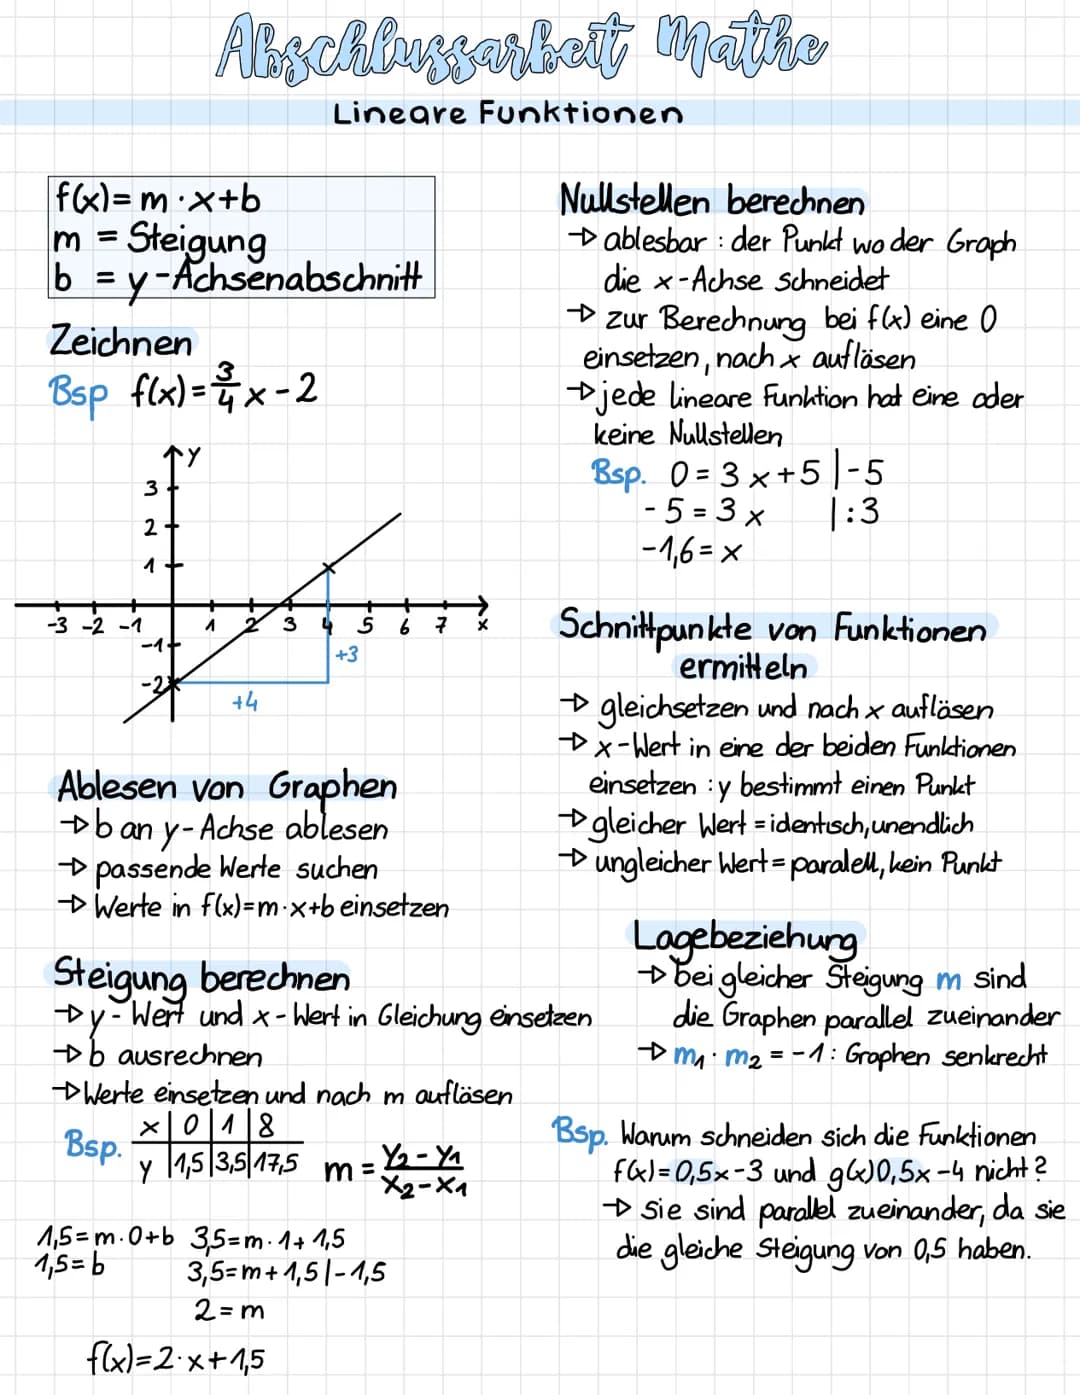 Abschlussarbeit Mathe
Lineare Funktionen
f(x)= m·x+b
m = Steigung
b = y-Achsenabschnitt
Zeichnen
Bsp f(x)=3/4 x-2
y
3
2
1
-3 -2 -1 1 2 3 4 5 6 7 x
-1
-2
+3
+4
Ablesen von Graphen
→ b an y-Achse ablesen
→ passende Werte suchen
→ Werte in f(x)=m·x+b einsetzen
Steigung berechnen
→ y-Wert und x-Wert in Gleichung einsetzen
→ b ausrechnen
→ Werte einsetzen und nach m auflösen
Bsp.
x | 0 | 1 | 8
y | 1,5 | 3,5 | 17,5
m = y₂-y₁ / x₂-x₁
1,5=m·0+b 3,5=m·1+1,5
1,5=b 3,5=m+1,5 |-1,5
2=m
f(x)=2·x+1,5
Nullstellen berechnen
→ ablesbar : der Punkt wo der Graph
die x-Achse schneidet
→ zur Berechnung bei f(x) eine 0
einsetzen, nach x auflösen
→ jede lineare Funktion hat eine oder
keine Nullstellen
Bsp. 0=3x+5 |-5
-5=3x |:3
-1,6=x
Schnittpunkte von Funktionen
ermitteln
→ gleichsetzen und nach x auflösen
→ x-Wert in eine der beiden Funktionen
einsetzen : y bestimmt einen Punkt
→ gleicher Wert = identisch, unendlich
→ ungleicher Wert = paralell, kein Punkt
Lagebeziehung
→ bei gleicher Steigung m sind
die Graphen parallel zueinander
→ m₁·m₂ = -1: Graphen senkrecht
Bsp. Warum schneiden sich die Funktionen
f(x)=0,5x-3 und g(x)0,5x-4 nicht?
→ Sie sind parallel zueinander, da sie
die gleiche Steigung von 0,5 haben.